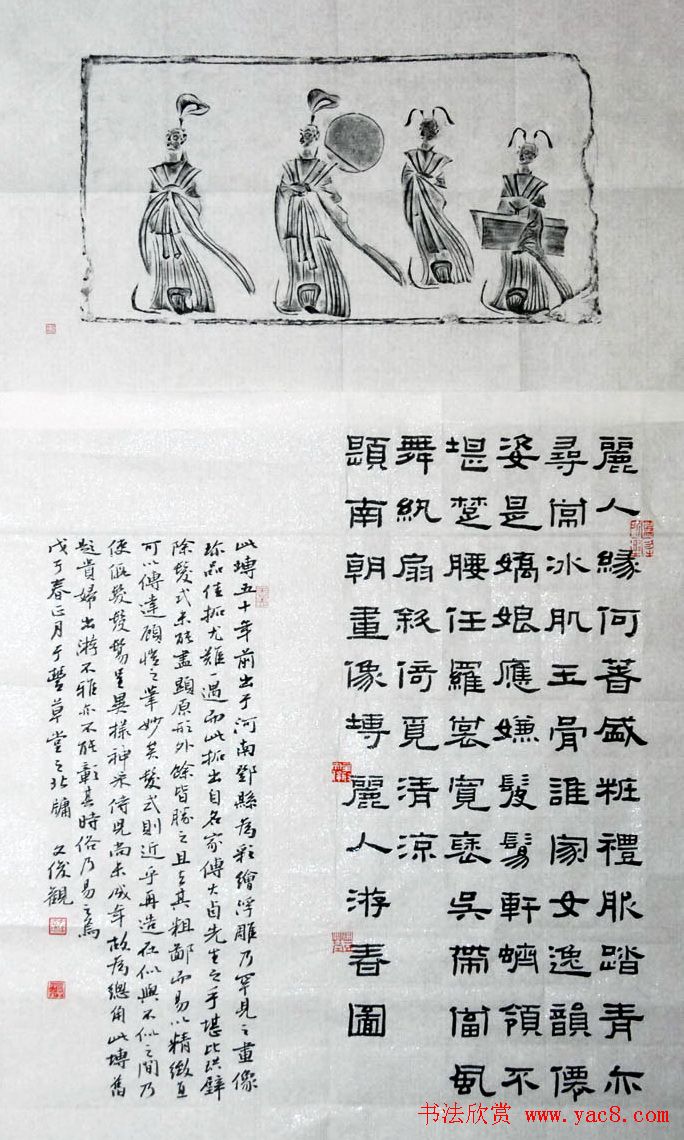 麗人緣何著盛粧禮服踏青亦
尋常冰肌玉骨誰家女逸韻僊
姿是嬌娘應嫌髮髾軒蠐領不
堪楚腰任羅裳寬褭吳帶當風
舞紈扇斜倚覓清涼
題南朝畫像塼麗人游春圖
此塼五十年前出于河南鄧縣為彩繪浮雕乃罕見之畫像
珎品佳拓尤難一遇而此拓出自名家傅大卣先生之手堪比珙璧
除髮式未能盡顯原形外餘皆勝之且去其粗鄙而易以精緻直
可以傳達顧愷之筆妙矣髮式則近乎再造在似與不似之間乃
使髮髾呈異採神采侍児尚未成年故為總角此塼舊
題貴婦出游不雅亦不能彰其時俗乃易之焉
戊子春正月于豐草堂之北牖 文俊觀
书法欣赏 www.yac8.com